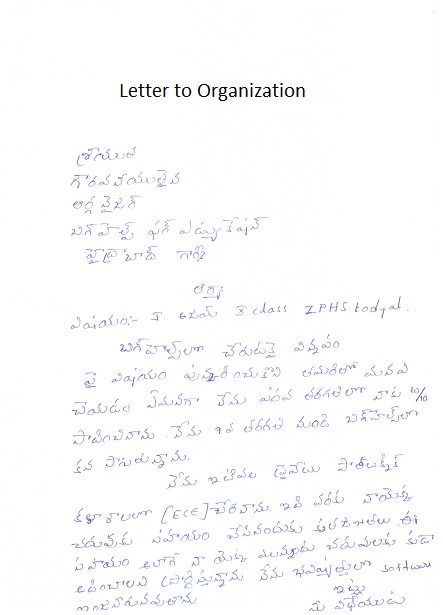 Letter to Organization
శ్రీయుత
గౌరవనీయులైన
ఆర్గనైజర్
బిగ్‌హెల్ప్ ఫర్ ఎడ్యుకేషన్
హైద్రాబాద్ గార్కి
ఆర్య
విషయం:- కె. అజయ్ X class ZPHS Kodgal.
బిగ్‌హెల్ప్‌లో చేరుటకై విన్నపం
పై విషయం పురస్కరించుకొని తమరితో మనవి
చేయడం ఏమనగా నేను పదవ తరగతిలో నాకు 10/10
సాధించినాను. నేను 9వ తరగతి నుండి బిగ్‌హెల్ప్‌లో
కొన సాగుతున్నాను.
నేను ఇటీవల ప్రైవేటు పాలిటెక్నిక్
కళాశాలలో [ECE] చేరినాను. ఇది వరకు నాయొక్క
చదువుకు సహాయం చేసినందుకు కృతజ్ఞతలు ఈ
సహాయం అలాగే నా యొక్క ముందు చదువులకు కూడా
అందించాలని ప్రార్థిస్తున్నాను నేను భవిష్యత్తులో software
ఇట్లు
మీ విధేయుడు